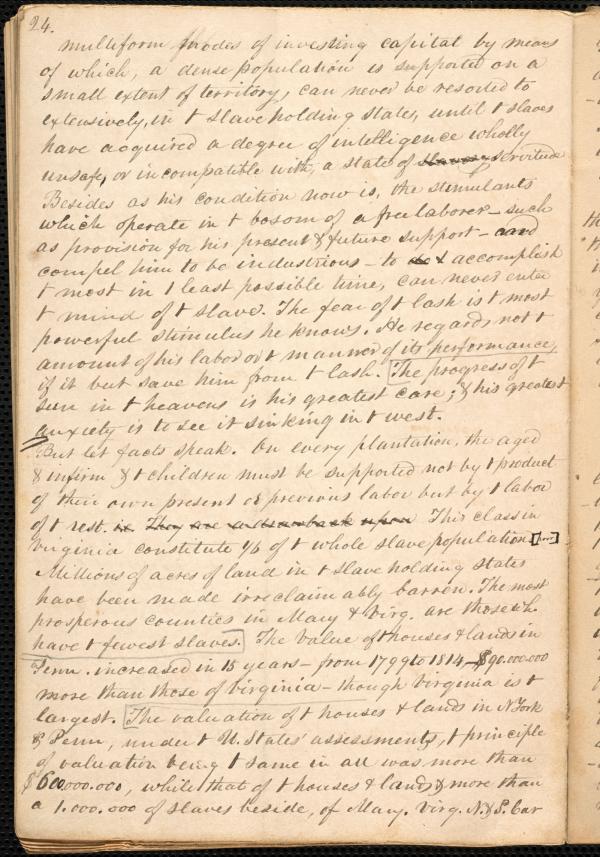 24.
multiform modes of investing capital by means
of which, a dense population is supported on a
small extent of territory, can never be resorted to
extensively, in t slave holding states, until t slaves
have acquired a degree of intelligence wholly
unsafe, or incompatible with, a state of slavery servitude
Besides as his condition now is, the stimulants
which operate in t bosom of a free laborer – such
as provision for his present & future support – and
compel him to be industrious – to do & accomplish
t most in t least possible time, can never enter
t mind of t slave. The fear of t lash is t most
powerful stimulus he knows. He regards not t
amount of his labor or t manner of its performance,
if it but save him from t lash. [The progress of t
sun in t heavens is his greatest care; & his greatest
anxiety is to see it sinking in t west.
But let facts speak. On every plantation, the aged
& infirm & t children must be supported not by t product
of their own present or previous labor but by t labor
of t rest. is They are a drawback upon This class in
Virginia constitute 4/6 of t whole slave population. [...]
Millions of acres of land in t slave holding states
have been made irreclaimably barren. The most
prosperous counties in Mary & Virg. are those wh.
have t fewest slaves.] The value of t houses & lands in
Penn. increased in 15 years – from 1799 to 1814 – $90.000.000
more than those of Virginia – though Virginia is t
largest. [The valuation of t houses & lands in N York
& Penn, under t U. States' assessments, t principle
of valuation being t same in all was more than
$600.000.000, while that of t houses & lands & more than
a 1.000.000 of slaves beside, of Mary. Virg. N. & S. Car